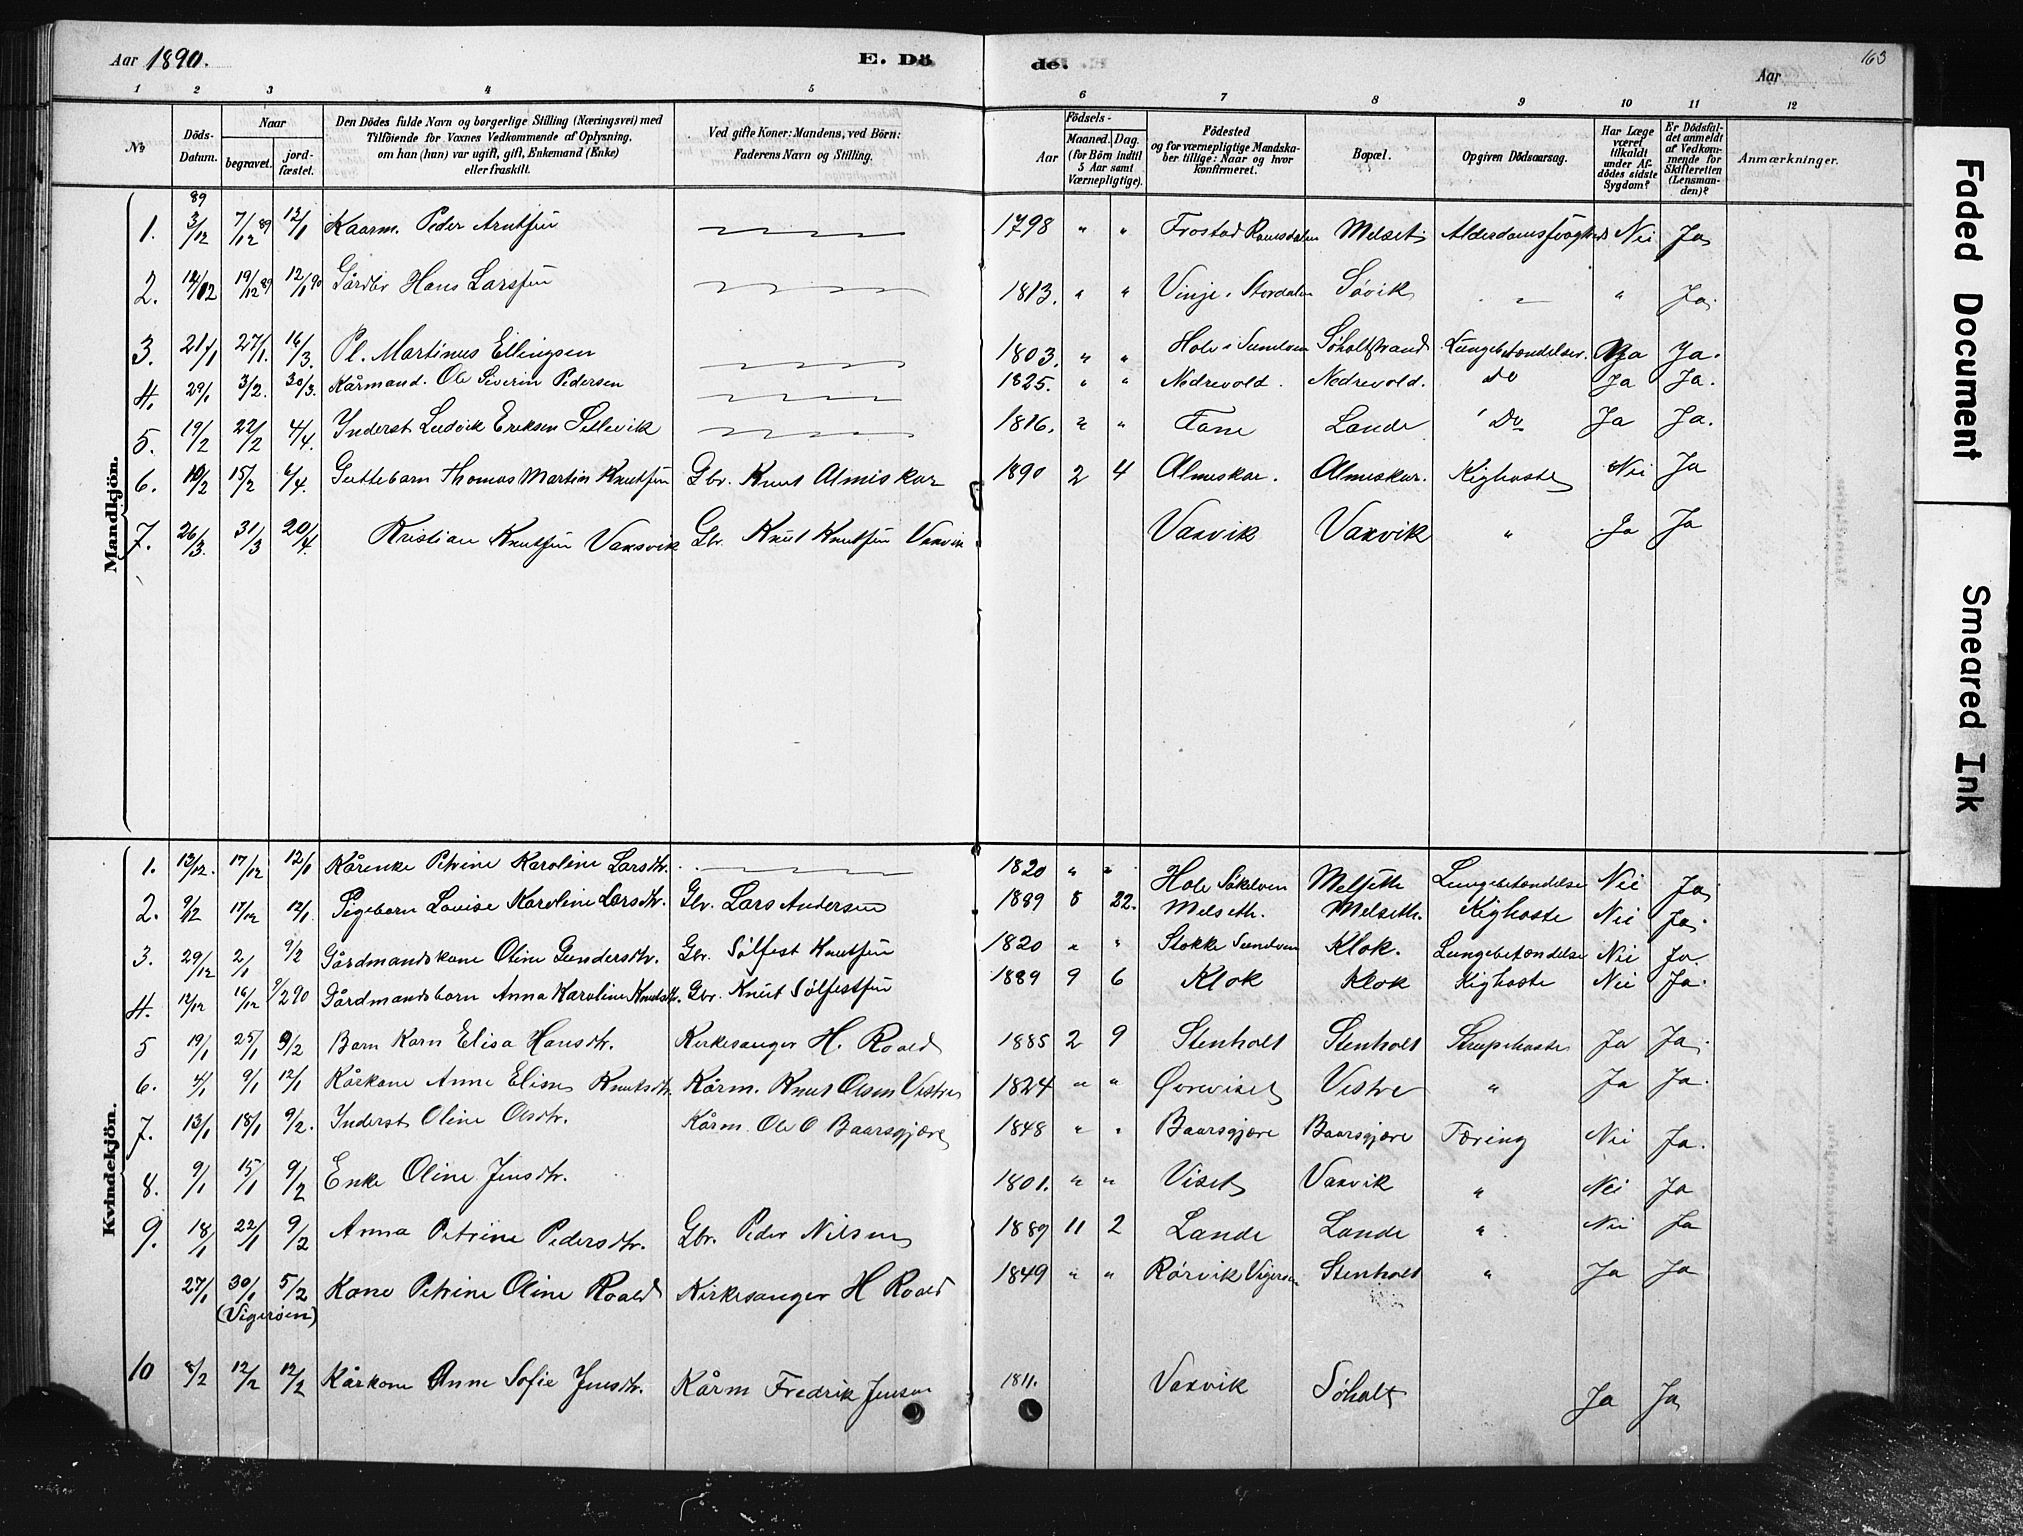 Aar 1890. E. Dö de. Aar 163
1 2 3 4 5 6 7 8 9 10 11 12
No Döds-Datum. Naar begravet. jord-fæstet. Den Dödes fulde Navn og borgerlige Stilling (Næringsvei) med Tilföiende for Voxnes Vedkommende af Oplysning, om han (hun) var ugift, gift, Enkemand (Enke) eller fraskilt. Ved gifte Koner: Mandens, ved Börn: Faderens Navn og Stilling. Födsels- Aar Maaned. Dag. (for Börn indtil 5 Aar samt Værnepligtige). Födested og for værnepligtige Mandskaber tillige: Naar og hvor konfirmeret. Bopæl. Opgiven Dödsaarsag. Har Læge været tilkaldt under Afdödes sidste Sygdom? Er Dödsfaldet anmeldt af Vedkommende for Skifteretten (Lensmanden)? Anmærkninger.
Mandkjön.
89
1. 3/12 7/12 89 12/1 Kaarm. Peder Arntsen 1798 " " Frostad Romsdalen Melset Nei Ja
2. 14/12 19/12 89 12/1 90 Gårdbr Hans Larssen 1813. " " Vinje i Stordalen Søvik " " Ja.
3. 21/1 27/1. 16/3. Pl. Martinus Ellingsen 1803. " " Hole i Sundven Søholtstrand Lungebetændelse. Ja Ja.
4. 29/1 3/2. 30/3. Kårmand. Ole Severin Pedersen 1825. " " Nedrevold. Nedrevold. Do Ja Ja.
5. 19/2 22/2 4/4. Inderst Ludvik Eriksen Sellevik 1816. " " Fane Lande Do Ja Ja.
6. 10/2 15/2 6/4. Guttebarn Thomas Martin Knutsen Gbr. Knut Almiskar 1890 2 4 Almeskar. Almeskar. Kighoste Nei Ja
7. 26/3. 31/3 20/4. Kristian Knutsen Vaxsvik Gbr. Knut Knutsen Vaxvik Vaxvik Vaxvik " Ja Ja
Kvindekjön.
1. 13/12. 17/12 12/1 Kårenke Petrine Karoline Larsdtr. 1820 " " Hole Søkelven Melseth Lungebetændelse Nei Ja
2. 9/12 17/12 12/1. Pigebarn Lovise Karoline Larsdtr. Gbr. Lars Andersen 1889 8 22. Melseth. Melseth. Kighoste Nei Ja.
3. 29/12 2/1 9/2 Gårdmandskone Oline Gundersdtr. Gbr. Sølfest Knutsen 1820 " " Stokke Sundven Klok. Lungebetændelse Nei Ja.
4. 12/12 16/12 9/2 90 Gårdmandsbarn Anna Karoline Knutsdtr. Gbr. Knut Sølfestsen 1889 9 6 Klok Klok Kighoste Nei Ja.
5 19/1 25/1 9/2 Barn Karn Elisa Hansdtr. Kirkesanger H. Roald 1885 2 9 Stenholt Stenholt Strupehoste Ja Ja.
6. 4/1 9/1 12/1 Kårkone Anne Eline Knutsdtr. Kårm. Knut Olsen Vestre 1824 " " Øvreviset Vestre " Ja Ja.
7. 13/1 18/1 9/2. Inderst Oline Olsdtr. Kårm. Ole O Baarsgjære 1848 " " Baarsgjære Baarsgjære Tæring Nei Ja.
8. 9/1 15/1 9/2 Enke Oline Jensdtr. 1801. " " Viset Vaxvik " Nei Ja
9. 18/1 22/1 9/2 Anna Petrine Pedersdtr. Gbr. Peder Nilsen 1889 11 2 Lande Lande " Nei Ja
27/1 30/1 5/2 Kone Petrine Oline Roald Kirkesanger H Roald 1849 " " Rørvik Vigersen Stenholt " Ja Ja
(Vigersen)
10 8/2 12/2 12/2 Kårkone Anne Sofie Jensdtr. Kårm Fredrik Jensen 1811. Vaxvik Søholt Ja Ja
Faded Document
Smeared Ink